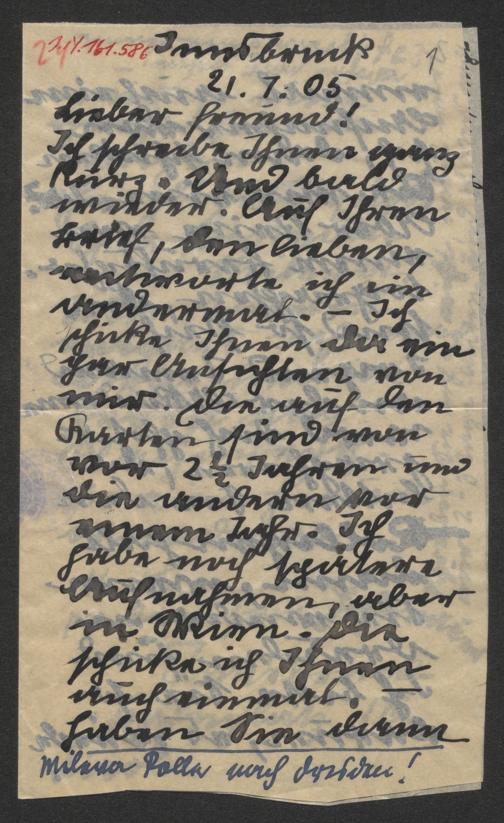 Innsbruck
1
21. 7. 05
Lieber Freund!
Ich schreibe Ihnen ganz
kurz. Und bald
wieder. Auf Ihren
Brief, den lieben,
antworte ich ein
andermal. — Ich
schicke Ihnen da ein
par Ansichten von
mir. Die auf den
Karten sind von
vor 2½ Jahren und
die andern vor
einem Jahr. Ich
habe noch spätere
Aufnahmen, aber
in Wien. Die
schicke ich Ihnen
auch einmal. —
Haben Sie dann
nach Dresden!